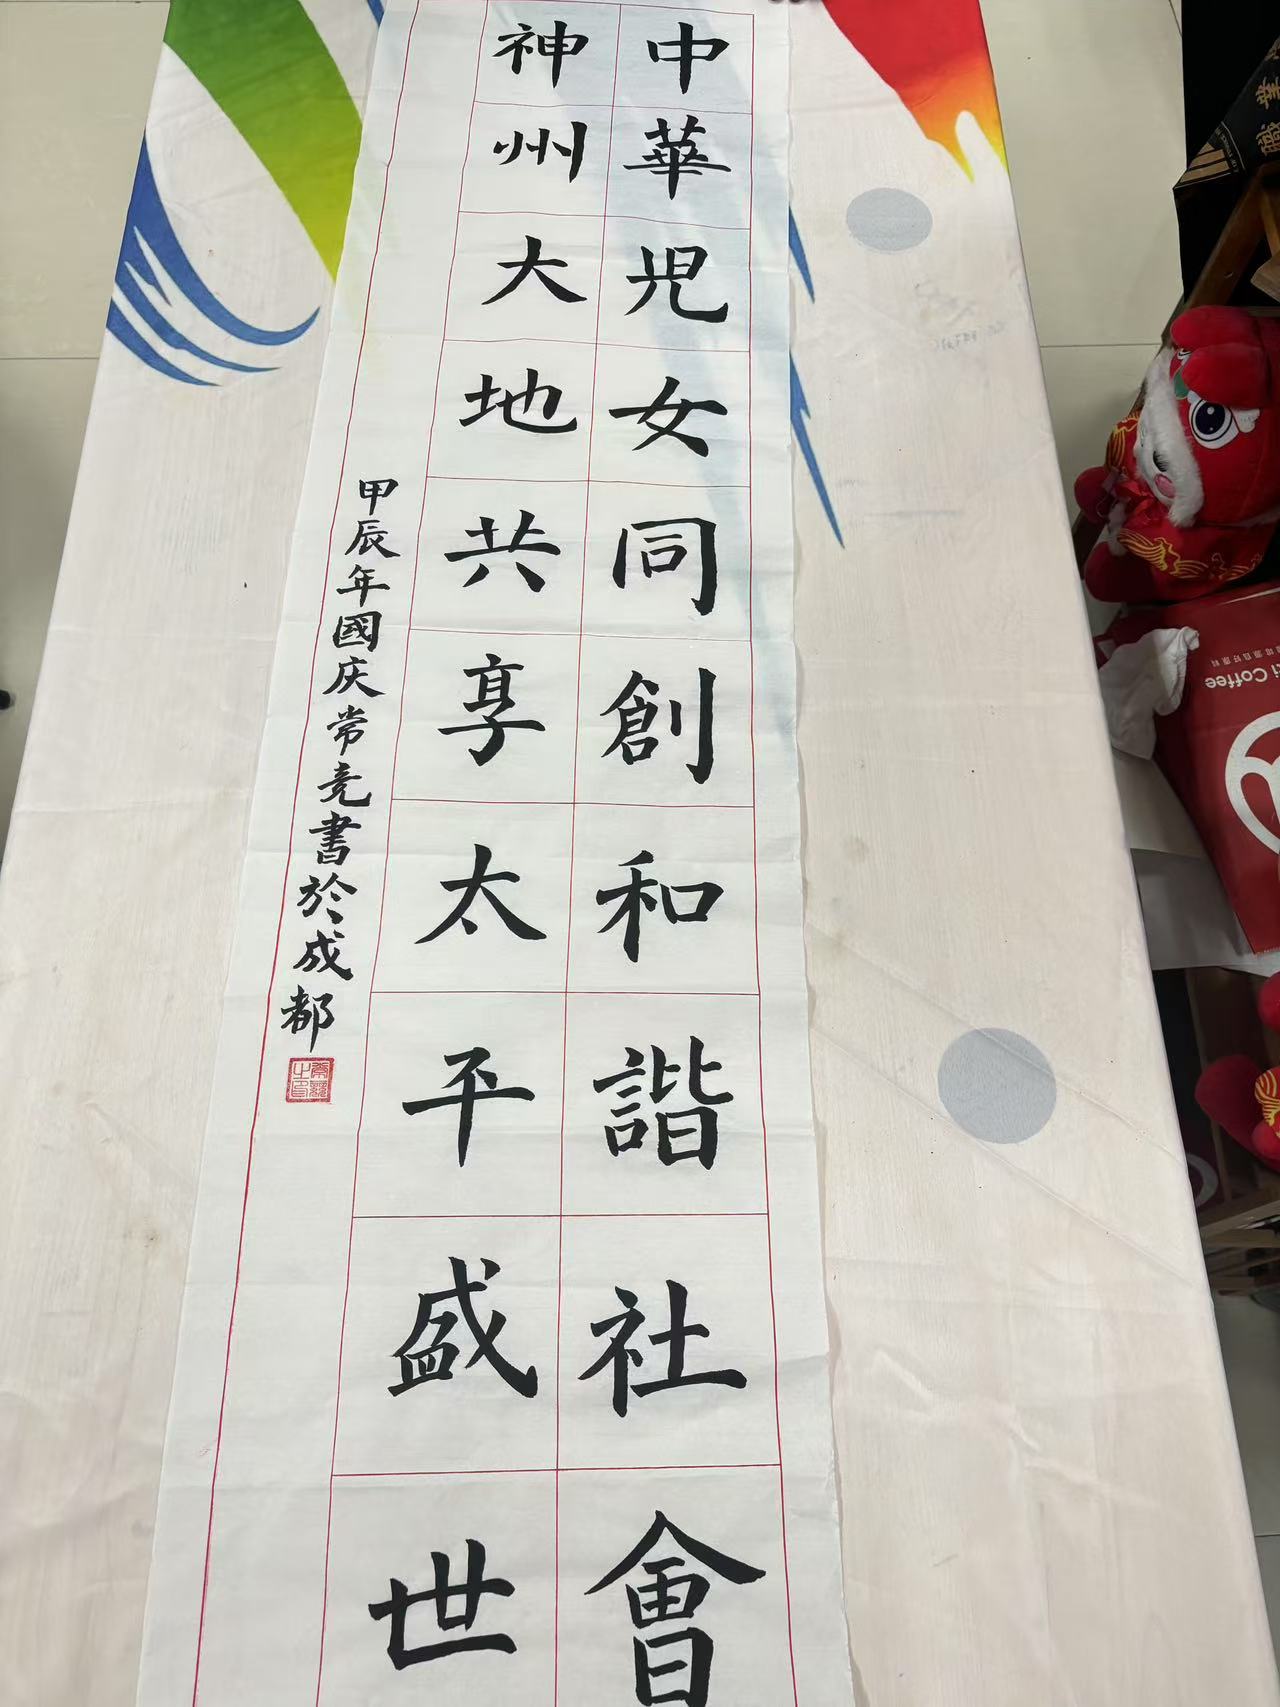 中華児女同創和諧社會
神州大地共享太平盛世
甲辰年國庆常竞書於成都
ti Coffee